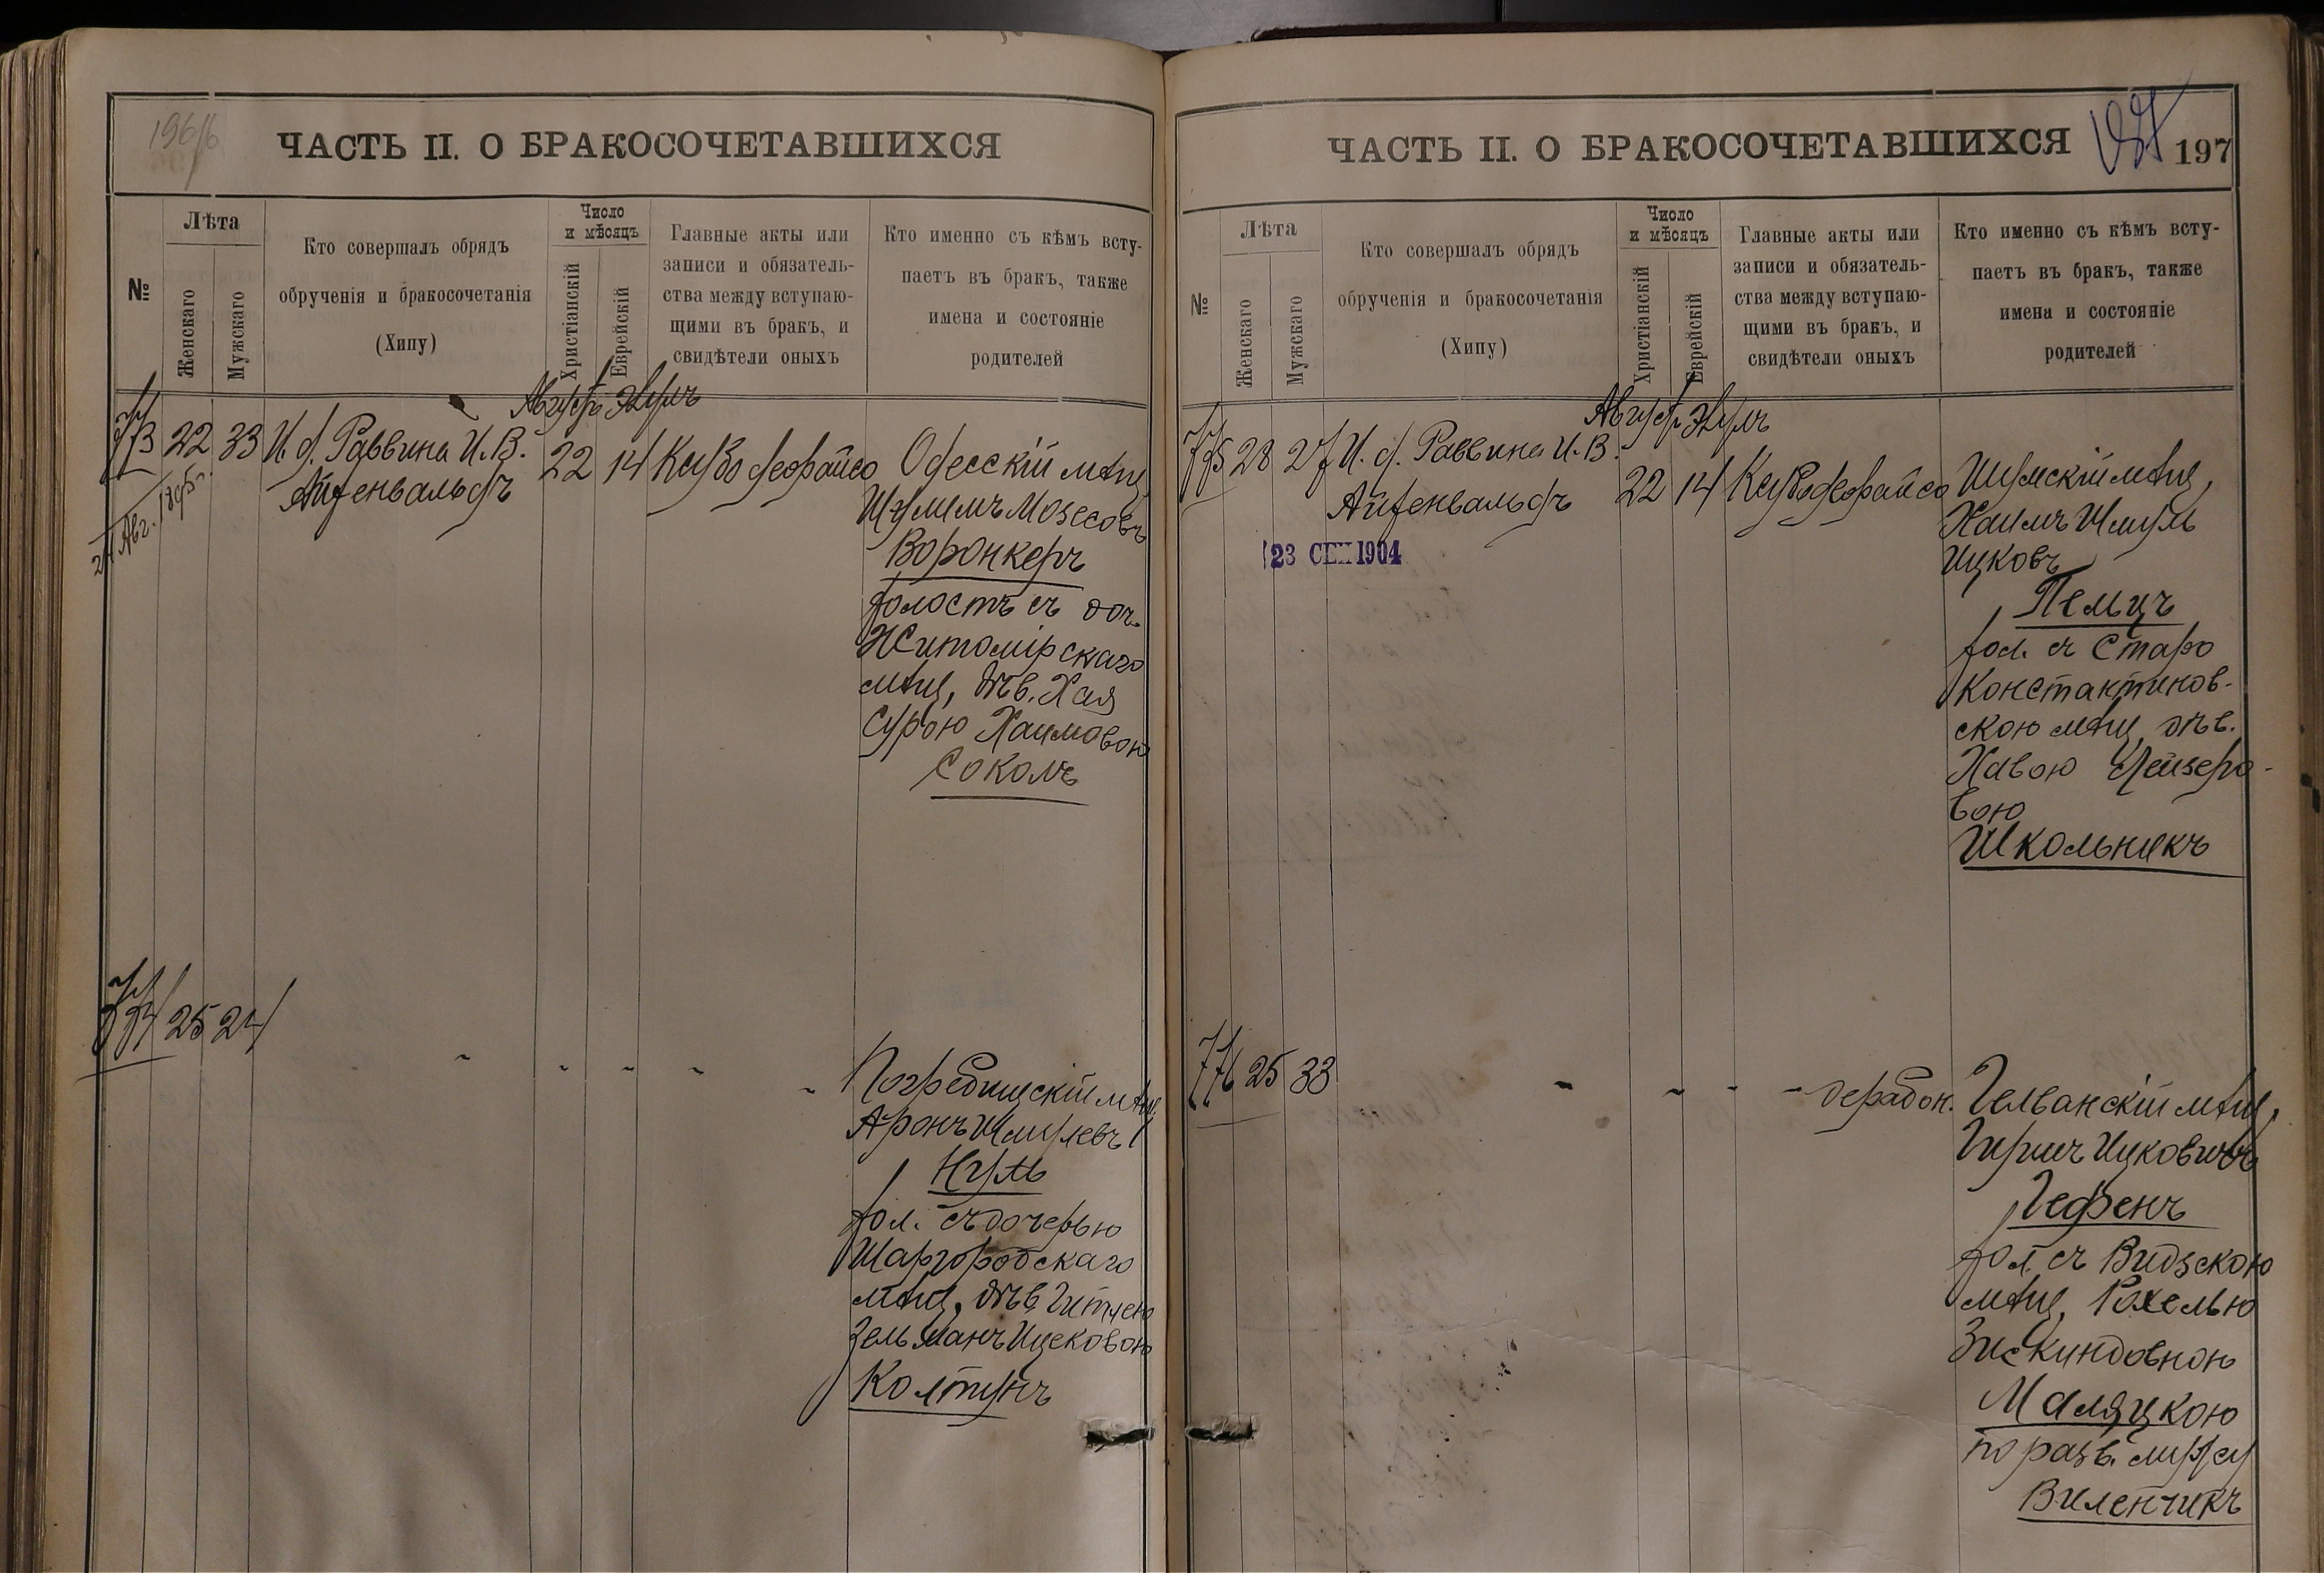 ЧАСТЬ II. О БРАКОСОЧЕТАВШИХСЯ
№
Лѣта
Женскаго
Мужскаго
Кто совершалъ обрядъ
обрученія и бракосочетанія
(Хипу)
Число
и мѣсяцъ
Христіанскій
Еврейскій
Главные акты или
записи и обязатель-
ства между вступаю-
щими въ бракъ, и
свидѣтели оныхъ
Кто именно съ кѣмъ всту-
паетъ въ бракъ, также
имена и состояніе
родителей
Августъ Элулъ
773 22 33 И. д. Раввина И. В.
Айзенвальдъ
22 14
24 Авг.
Одесскій мѣщ.
Шулимъ Мозесовъ
Воронкеръ
холостъ съ доч.
Житомірскаго
мѣщ, дѣв. Хая
Сурою Хаимовою
Соколъ
774 25 24
Погребищскій мѣщ.
Аронъ Шмулевъ
Нуль
хол. съ дочерью
Шаргородскаго
мѣщ, дѣв. Гитлею
Зельманъ Ицековою
Колтунъ
ЧАСТЬ II. О БРАКОСОЧЕТАВШИХСЯ
197
№
Лѣта
Женскаго
Мужскаго
Кто совершалъ обрядъ
обрученія и бракосочетанія
(Хипу)
Число
и мѣсяцъ
Христіанскій
Еврейскій
Главные акты или
записи и обязатель-
ства между вступаю-
щими въ бракъ, и
свидѣтели оныхъ
Кто именно съ кѣмъ всту-
паетъ въ бракъ, также
имена и состояніе
родителей
Августъ Элулъ
775 28 27 И. д. Раввина И. В.
Айзенвальдъ
22 14
23 СЕН 1904
Шумскій мѣщ,
Хаимъ Шмуль
Ицковъ
Пельцъ
хол. съ Старо
Константинов-
скою мѣщ, дѣв.
Хавою Лейзеро-
вою
Школьникъ
776 25 33
Гелванскій мѣщ,
Гиршъ Ицковичъ
Гефенъ
хол. съ Видзскою
мѣщ, Рохелью
Зискиндовною
Маляцкою
по разв. мужу
Виленчикъ